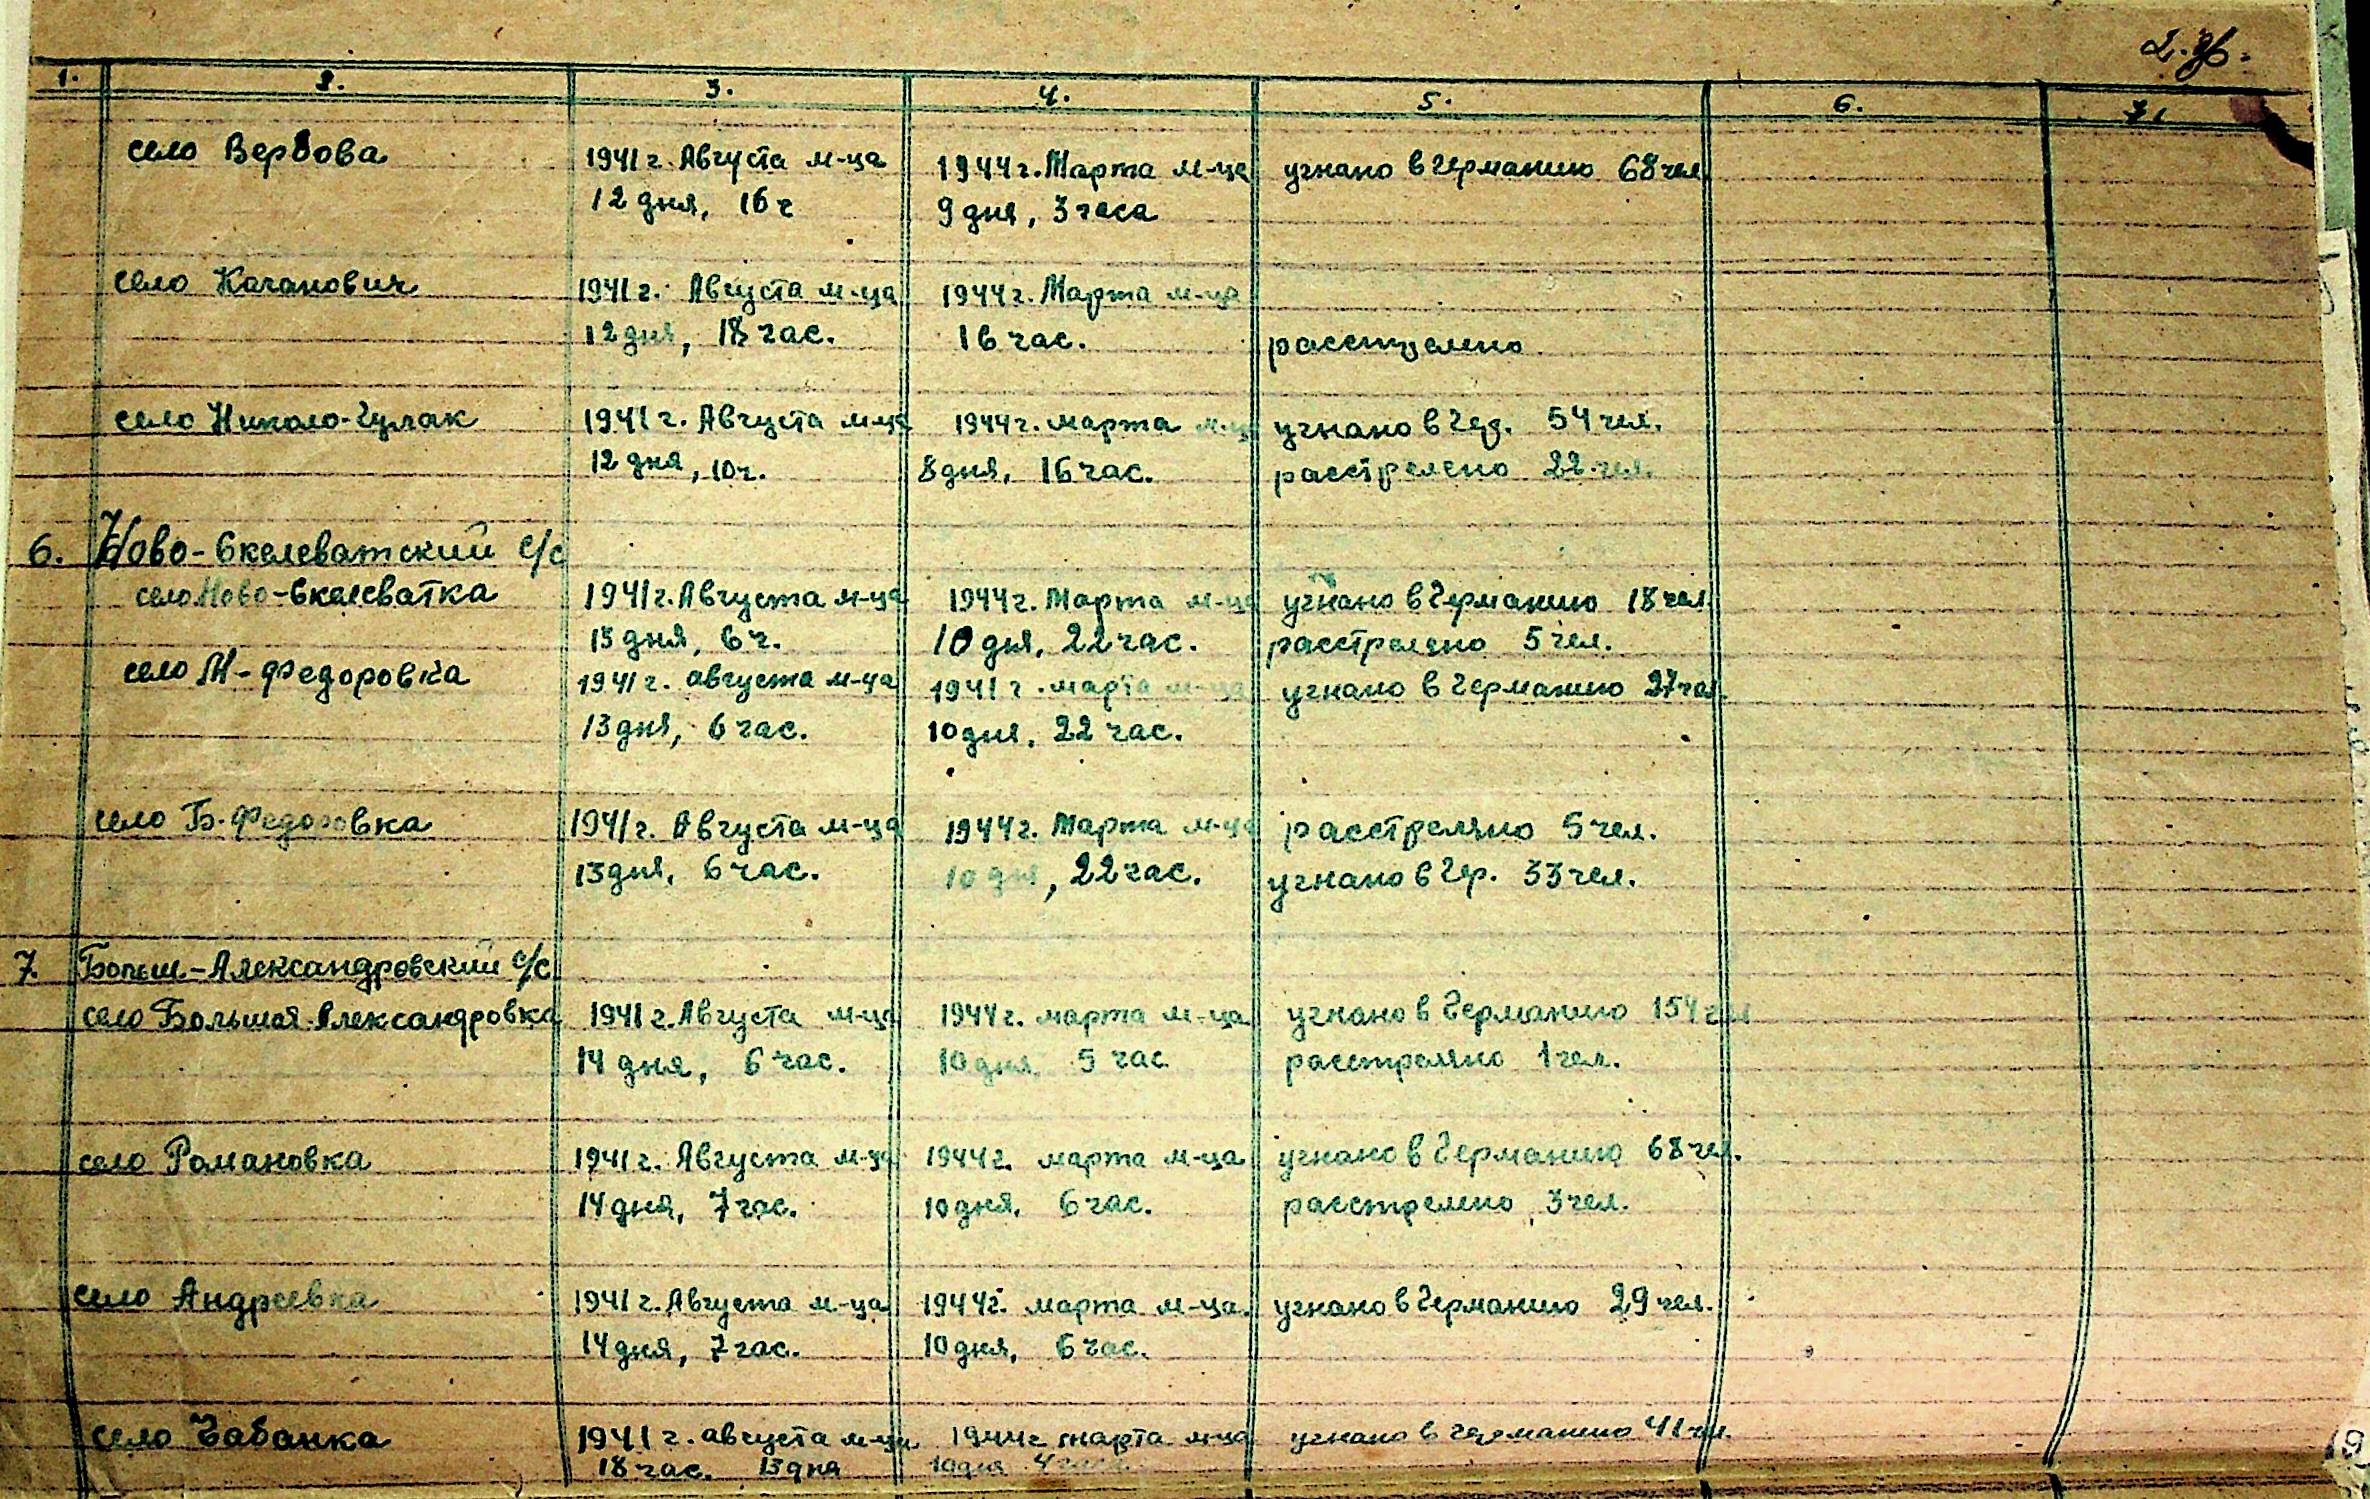 1. 2. 3. 4. 5. 6. 7.
село Вербова 1941 г. Августа м-ца 1944 г. Марта м-ца угнано в Германию 68 чел
12 дня, 16 ч 9 дня, 3 часа
село Качанович 1941 г. Августа м-ца 1944 г. Марта м-ца
12 дня, 18 час. 16 час.
село Николо-Гулак 1941 г. Августа м-ца 1944 г. марта м-ца угнано в Гер. 54 чел.
12 дня, 10 ч. 8 дня, 16 час. расстрелено 22 чел.
6. Ново-Скелеватский с/с
село Ново-Скелеватка 1941 г. Августа м-ца 1944 г. Марта м-ца угнано в Германию 18 чел
13 дня, 6 ч. 10 дня, 22 час. расстрелено 5 чел.
село М-Федоровка 1941 г. августа м-ца 1941 г. марта м-ца угнано в Германию 27 чел.
13 дня, 6 час. 10 дня, 22 час.
село Б. Федоровка 1941 г. Августа м-ца 1944 г. Марта м-ца расстреляно 5 чел.
13 дня, 6 час. 10 дня, 22 час. угнано в Гер. 33 чел.
7. Больш-Александровский с/с
село Большая Александровка 1941 г. Августа м-ца 1944 г. марта м-ца угнано в Германию 154 чел
14 дня, 6 час. 10 дня 5 час расстреляно 1 чел.
село Романовка 1941 г. Августа м-ца 1944 г. марта м-ца угнано в Германию 68 чел.
14 дня, 7 час. 10 дня, 6 час. расстрелено 3 чел.
село Андреевка 1941 г. Августа м-ца 1944 г. марта м-ца. угнано в Германию 29 чел.
14 дня, 7 час. 10 дня, 6 час.
село Чабанка 1941 г. августа м-ца 1944 г марта м-ца угнано в Германию 41 чел.
18 час. 13 дня 10 дня 4 часа